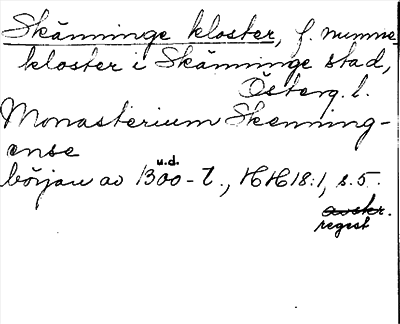 Skänninge kloster, f. nunne-
kloster i Skänninge stad,
Österg. l.
Monasterium Skenning-
ense
u.d.
början av 1300-t., HH18:1, s.5.
avskr.
regest